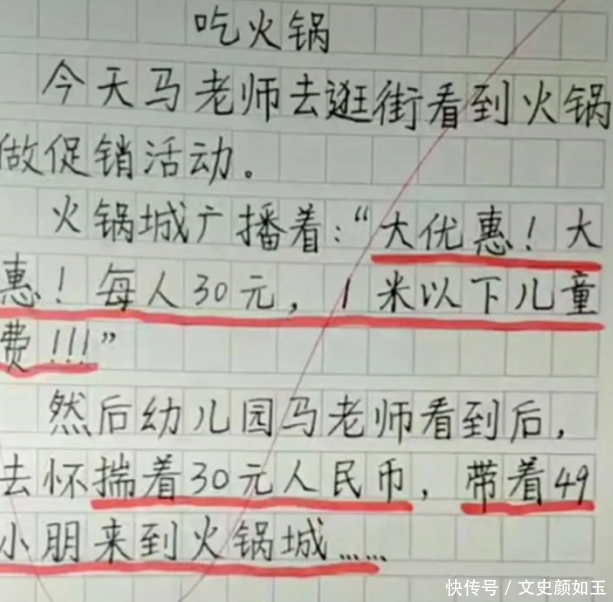 吃火锅
今天马老师去逛街看到火锅
做促销活动。
火锅城广播着:“大优惠!大
惠!每人30元,1米以下儿童
费!!!”
然后幼儿园马老师看到后,
去怀揣着30元人民币,带着49
小朋来到火锅城……
快传号/文史颜如玉